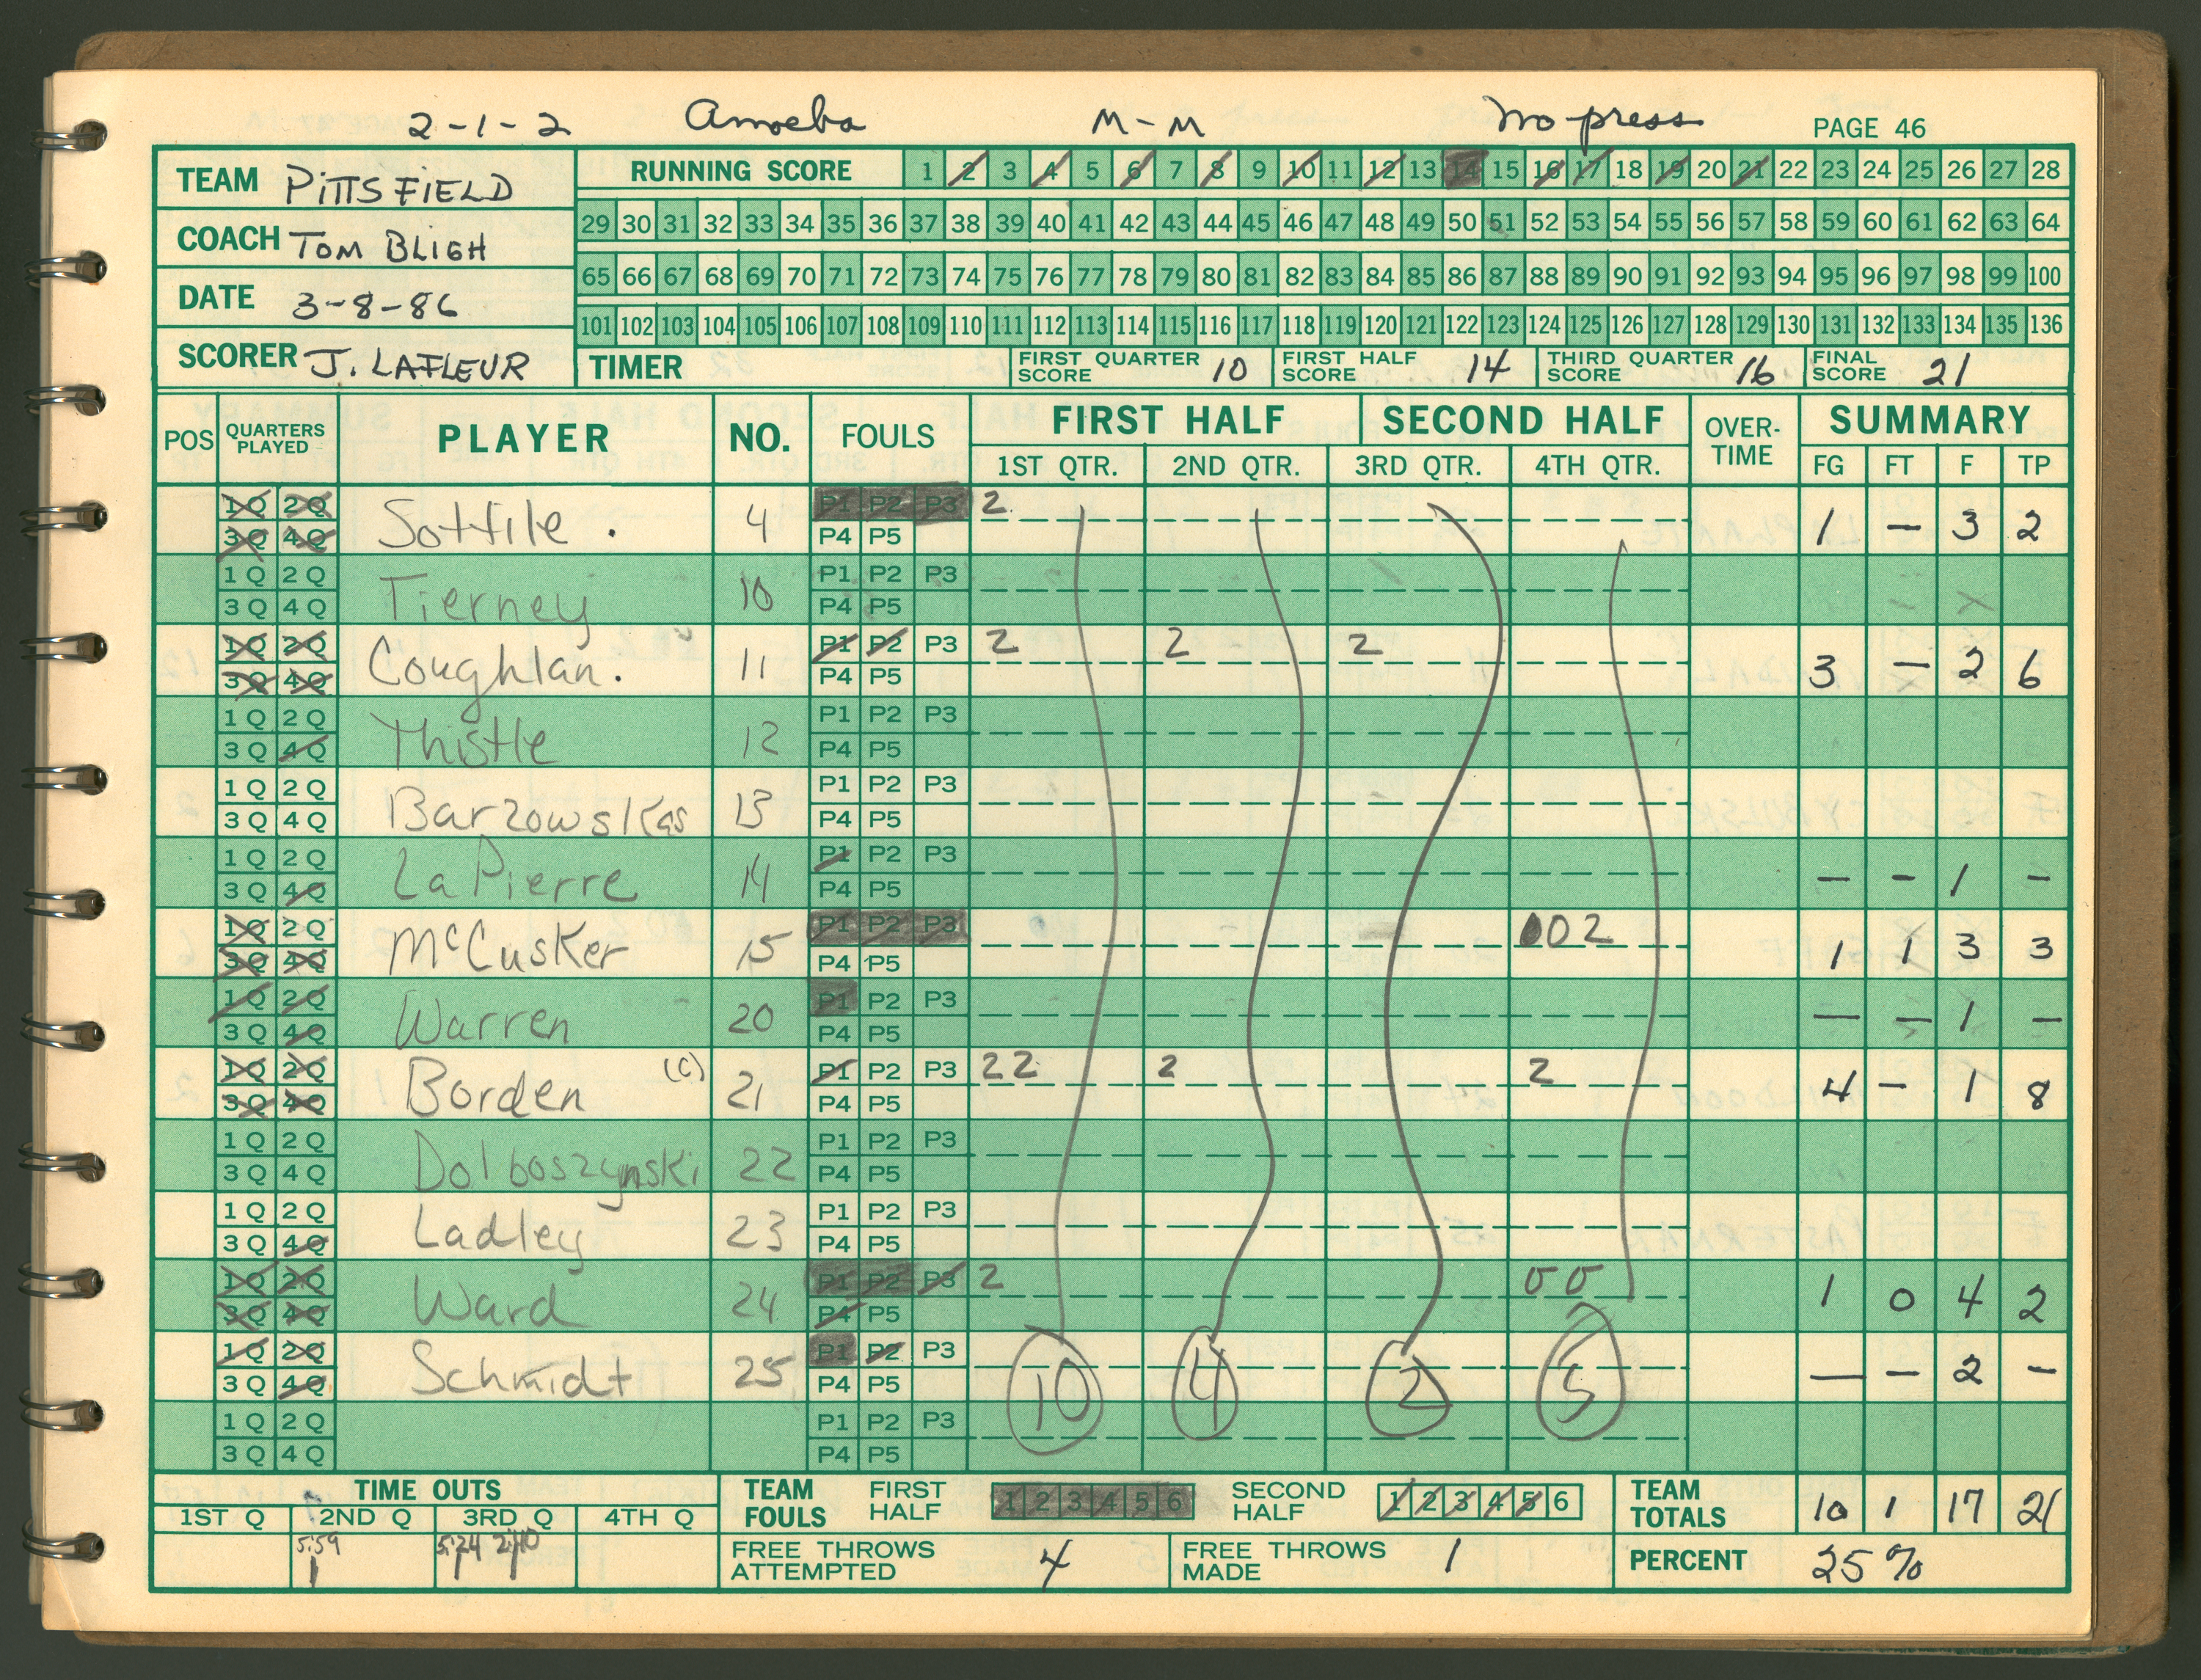 2-1-2 Amoeba M-M No press PAGE 46
TEAM PITTSFIELD
COACH TOM BLIGH
DATE 3-8-86
SCORER J. LAFLEUR
RUNNING SCORE 1 2 3 4 5 6 7 8 9 10 11 12 13 14 15 16 17 18 19 20 21 22 23 24 25 26 27 28
29 30 31 32 33 34 35 36 37 38 39 40 41 42 43 44 45 46 47 48 49 50 51 52 53 54 55 56 57 58 59 60 61 62 63 64
65 66 67 68 69 70 71 72 73 74 75 76 77 78 79 80 81 82 83 84 85 86 87 88 89 90 91 92 93 94 95 96 97 98 99 100
101 102 103 104 105 106 107 108 109 110 111 112 113 114 115 116 117 118 119 120 121 122 123 124 125 126 127 128 129 130 131 132 133 134 135 136
TIMER FIRST QUARTER SCORE 10 FIRST HALF SCORE 14 THIRD QUARTER SCORE 16 FINAL SCORE 21
POS QUARTERS PLAYED PLAYER NO. FOULS FIRST HALF SECOND HALF OVER-TIME SUMMARY
1ST QTR. 2ND QTR. 3RD QTR. 4TH QTR. FG FT F TP
1Q 2Q P1 P2 P3 2
3Q 4Q Sottile . 4 P4 P5 1 – 3 2
1Q 2Q P1 P2 P3
3Q 4Q Tierney 10 P4 P5
1Q 2Q P1 P2 P3 2 2 2
3Q 4Q Coughlan. 11 P4 P5 3 – 2 6
1Q 2Q P1 P2 P3
3Q 4Q Thistle 12 P4 P5
1Q 2Q P1 P2 P3
3Q 4Q Barzowskas 13 P4 P5
1Q 2Q P1 P2 P3
3Q 4Q LaPierre 14 P4 P5 – – 1 –
1Q 2Q P1 P2 P3 002
3Q 4Q McCusker 15 P4 P5 1 1 3 3
1Q 2Q P1 P2 P3
3Q 4Q Warren 20 P4 P5 – – 1 –
1Q 2Q (C) P1 P2 P3 22 2 2
3Q 4Q Borden 21 P4 P5 4 – 1 8
1Q 2Q P1 P2 P3
3Q 4Q Dolboszynski 22 P4 P5
1Q 2Q P1 P2 P3
3Q 4Q Ladley 23 P4 P5
1Q 2Q P1 P2 P3 2 00
3Q 4Q Ward 24 P4 P5 1 0 4 2
1Q 2Q P1 P2 P3
3Q 4Q Schmidt 25 P4 P5 10 4 2 5 – – 2 –
1Q 2Q P1 P2 P3
3Q 4Q P4 P5
TIME OUTS
1ST Q 2ND Q 3RD Q 4TH Q
5:59 5:24 2:40
1 1 1
TEAM FOULS FIRST HALF 1 2 3 4 5 6 SECOND HALF 1 2 3 4 5 6 TEAM TOTALS 10 1 17 21
FREE THROWS ATTEMPTED 4 FREE THROWS MADE 1 PERCENT 25%